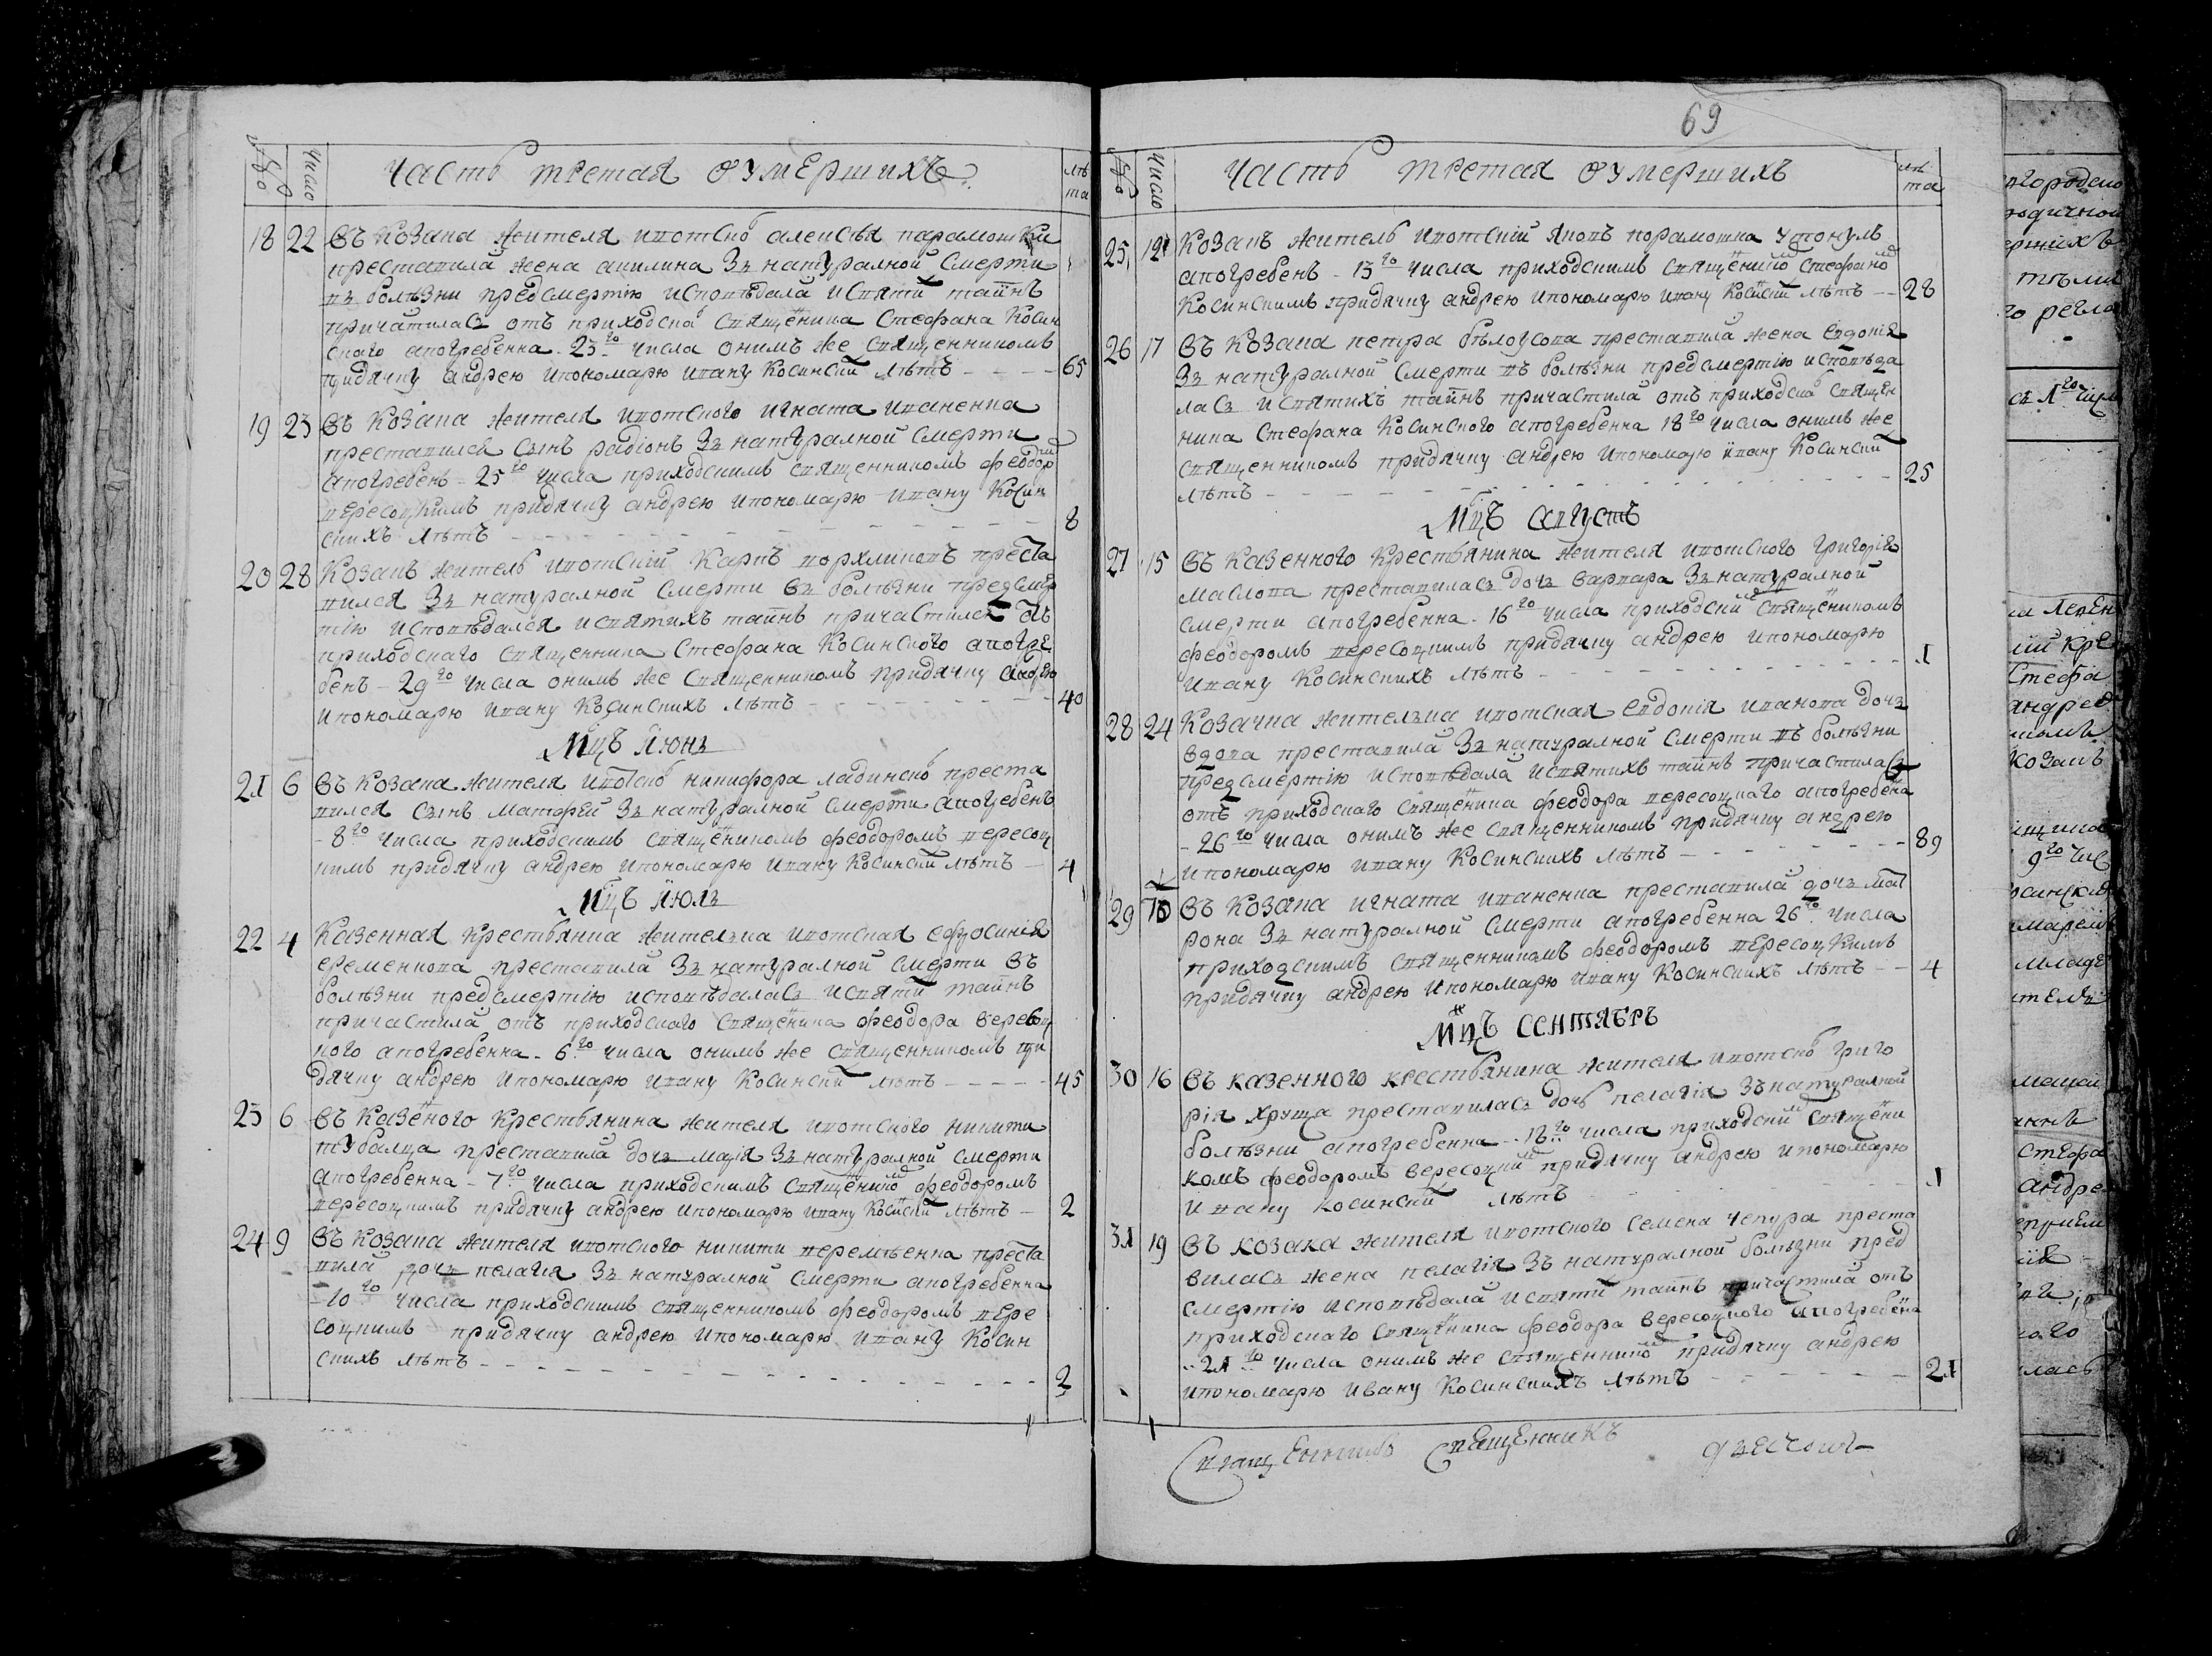 69
число
Часть третая оумершихъ
лѣта
18 22 Въ козака жителя ипотског алеиѣя парамошки
преставилас жена акилина Зъ натуралной смерти
въ болѣзни предсмертію исповѣдалас исвятих таинъ
причатилась отъ приходског священика Стефана Косин
ского апогребенна 23го числа онимъ же священникомъ
придячку андрею ипономарю ивану Косинских лѣтъ 65
19 23 Въ Козака жителя ипотского игната иваненка
преставился сынъ радіонъ Зъ натуралной смерти
апогребенъ 25го числа приходскимъ священникомъ феодором
вересоцкимъ придячку андрею ипономарю ивану Косин
скихъ лѣтъ 8
20 28 Козакъ житель ипотскій Карпъ преста
вился Зъ натуралной смерти Въ болѣзни предсмер
тію исповѣдался исвятихъ таинъ причастился отъ
приходскаго священника Стефана Косинского апогре
бенъ 29го числа онимъ же священникомъ придячку андрею
ипономарю ивану Косинскихъ лѣтъ 40
Мцъ Июнь
21 6 Въ козака жителя ипотског никифора ладинског преста
вился сынъ матфей Зъ натуралной смерти апогребенъ
8го числа приходскимъ священикомъ феодоромъ вересоц
кимъ придячку андрею ипономарю ивану Косинских лѣтъ 4
Мцъ Июль
22 4 Казенная крестьянка жителька ипотская ефросинія
еременкова преставилас Зъ натуралной смерти Въ
болѣзни предсмертію исповѣдалась исвятих таинъ
причастилас отъ приходскаго священика феодора вересоц
кого апогребенна 6го числа онимъ же священникомъ при
дячку андрею ипономарю ивану Косинских лѣтъ 45
23 6 Въ казеного крестьянина жителя ипотского никити
тубалца преставилас дочь марія Зъ натуралной смерти
апогребенна 7го числа приходскимъ священиком феодоромъ
вересоцкимъ придячку андрею ипономарю ивану Косинских лѣтъ 2
24 9 Въ козака жителя ипотского никити преста
вилас дочь пелагія Зъ натуралной смерти апогребенна
10го числа приходскимъ священникомъ феодоромъ вере
соцкимъ придячку андрею ипономарю ивану Косин
скихъ лѣтъ 2
число
Часть третая оумершихъ
лѣта
25 12 Козакъ житель ипотскій яковъ порамошка утонулъ
апогребенъ 13го числа приходскимъ священиком стефаном
Косинскимъ придячку андрею ипономарю ивану Косинских лѣтъ 28
26 17 Въ козака петра бѣлоусова преставилас жена евдокія
Зъ натуралной смерти въ болѣзни предсмертію исповѣда
лась исвятихъ таинъ причастилас отъ приходског священ
ника Стефана Косинского апогребенна 18го числа онимъ же
священникомъ придячку андрею ипономарю ивану Косинских
лѣтъ 25
Мцъ августъ
27 15 Въ казенного крестьянина жителя ипотского григорія
маслова преставилась дочь варвара Зъ натуралной
смерти апогребенна 16го числа приходским священикомъ
феодоромъ вересоцкимъ придячку андрею ипономарю
ивану Косинскихъ лѣтъ 1
28 24 Козачка жителька ипотская евдокія иванова дочь
вдова преставилас Зъ натуралной смерти въ болѣзни
предсмертію исповѣдалас исвятихъ таинъ причастилась
отъ приходскаго священика феодора вересоцкаго апогребена
26го числа онимъ же священникомъ придячку андрею
ипономарю ивану Косинскихъ лѣтъ 89
29 Въ козака игната иваненка преставилас дочь мат
рона Зъ натуралной смерти апогребенна 26го числа
приходскимъ священникомъ феодоромъ вересоцкимъ
придячку андрею ипономарю ивану Косинскихъ лѣтъ 4
Мцъ Сентябръ
30 16 Въ казенного крестьянина жителя ипотског григо
рія хруща преставилась дочь пелагія Зъ натуралной
болѣзни апогребенна 18го числа приходским священи
комъ феодоромъ вересоцким придячку андрею ипономарю
ивану косинских лѣтъ 1
31 19 Въ козака жителя ипотского семена чепура преста
вилась жена пелагія Зъ натуралной болѣзни пред
смертію исповѣдалас исвятих таинъ причастилас отъ
приходскаго священика феодора вересоцкого апогребена
21го числа онимъ же священиком придячку андрею
ипономарю ивану Косинскихъ лѣтъ 21
Священникъ священникъ